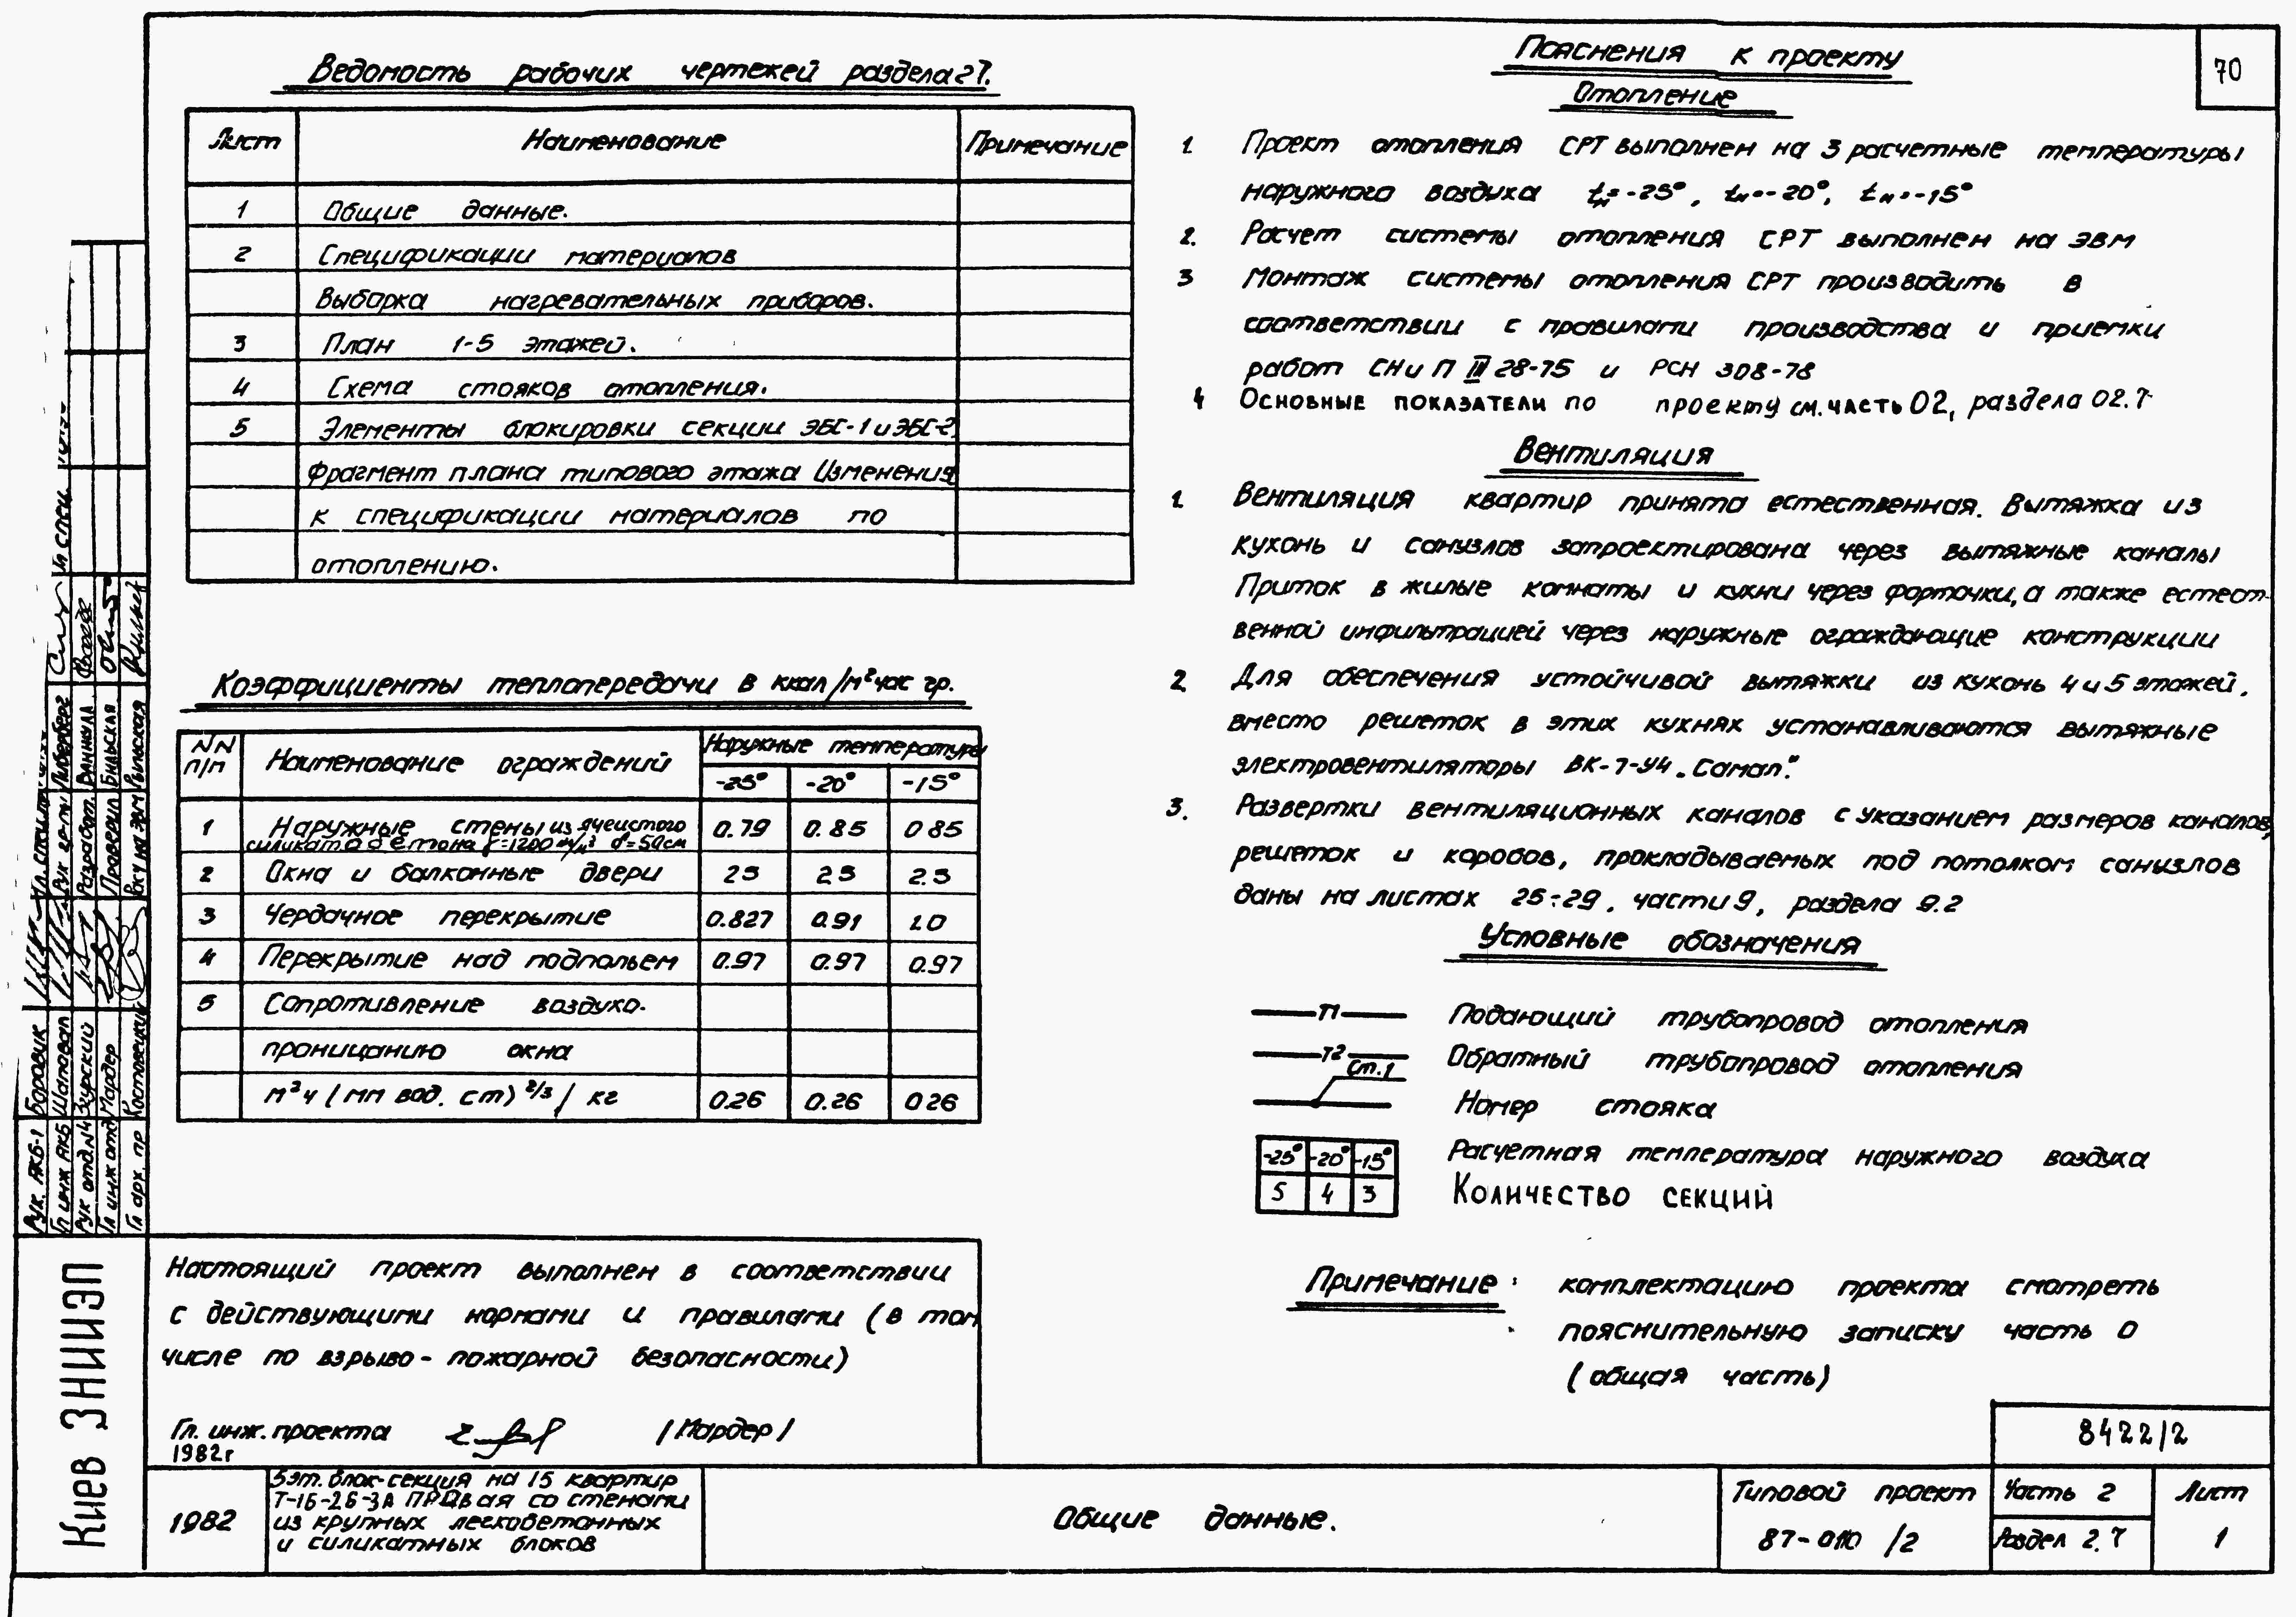 70
Ведомость рабочих чертежей раздела 2.7.
Лист Наименование Примечание
1 Общие данные.
2 Спецификации материалов
Выборка нагревательных приборов.
3 План 1-5 этажей.
4 Схема стояков отопления.
5 Элементы блокировки секции ЭБС-1 и ЭБС-2.
Фрагмент плана типового этажа Изменения
к спецификации материалов по
отоплению.
Коэффициенты теплопередачи в ккал/м²час гр.
NN п/п Наименование ограждений Наружные температуры
-25° -20° -15°
1 Наружные стены из ячеистого 0.79 0.85 0 85
силикатобетона γ=1200 кг/м³ δ=50см
2 Окна и балконные двери 2 5 2 5 2.5
3 Чердачное перекрытие 0.827 0.91 1.0
4 Перекрытие над подпольем 0.97 0.97 0.97
5 Сопротивление воздухо-
проницанию окна
м²ч (мм вод. ст)²/³/ кг 0.26 0.26 0 26
Пояснения к проекту
Отопление
1. Проект отопления СРТ выполнен на 3 расчетные температуры
наружного воздуха tн=-25°, tн=-20°, tн=-15°
2. Расчет системы отопления СРТ выполнен на ЭВМ
3 Монтаж системы отопления СРТ производить в
соответствии с правилами производства и приемки
работ СНиП III 28-75 и РСН 308-78
4 Основные показатели по проекту см. часть 02, раздела 02.7
Вентиляция
1. Вентиляция квартир принята естественная. Вытяжка из
кухонь и санузлов запроектирована через вытяжные каналы
Приток в жилые комнаты и кухни через форточки, а также естест-
венной инфильтрацией через наружные ограждающие конструкции
2. Для обеспечения устойчивой вытяжки из кухонь 4 и 5 этажей,
вместо решеток в этих кухнях устанавливаются вытяжные
электровентиляторы ВК-7-У4 „Самал".
3. Развертки вентиляционных каналов с указанием размеров каналов,
решеток и коробов, прокладываемых под потолком санузлов
даны на листах 25÷29, части 9, раздела 9.2
Условные обозначения
Т1 Подающий трубопровод отопления
Т2 Обратный трубопровод отопления
Ст.1 Номер стояка
-25° -20° -15° Расчетная температура наружного воздуха
5 4 3 Количество секций
Примечание: комплектацию проекта смотреть
пояснительную записку часть 0
(общая часть)
Настоящий проект выполнен в соответствии
с действующими нормами и правилами (в том
числе по взрыво-пожарной безопасности)
Гл. инж. проекта /Мардер/
1982г
Рук. АКБ-1 Боровик
Гл инж АКБ Шаповал Рук гр-пы Либерберг
Рук отд.N4 Згурский Разработ. Ваннула
Гл инж отд Мардер Проверил Бильская
Гл арх. пр Костовецкий Расч на ЭВМ Рыльская
Киев ЗНИИЭП
1982
5эт. блок-секция на 15 квартир
Т-1Б-2Б-3А правая со стенами
из крупных легкобетонных
и силикатных блоков
Общие данные.
8422/2
Типовой проект
87-010 /2
Часть 2
Раздел 2.7
Лист
1